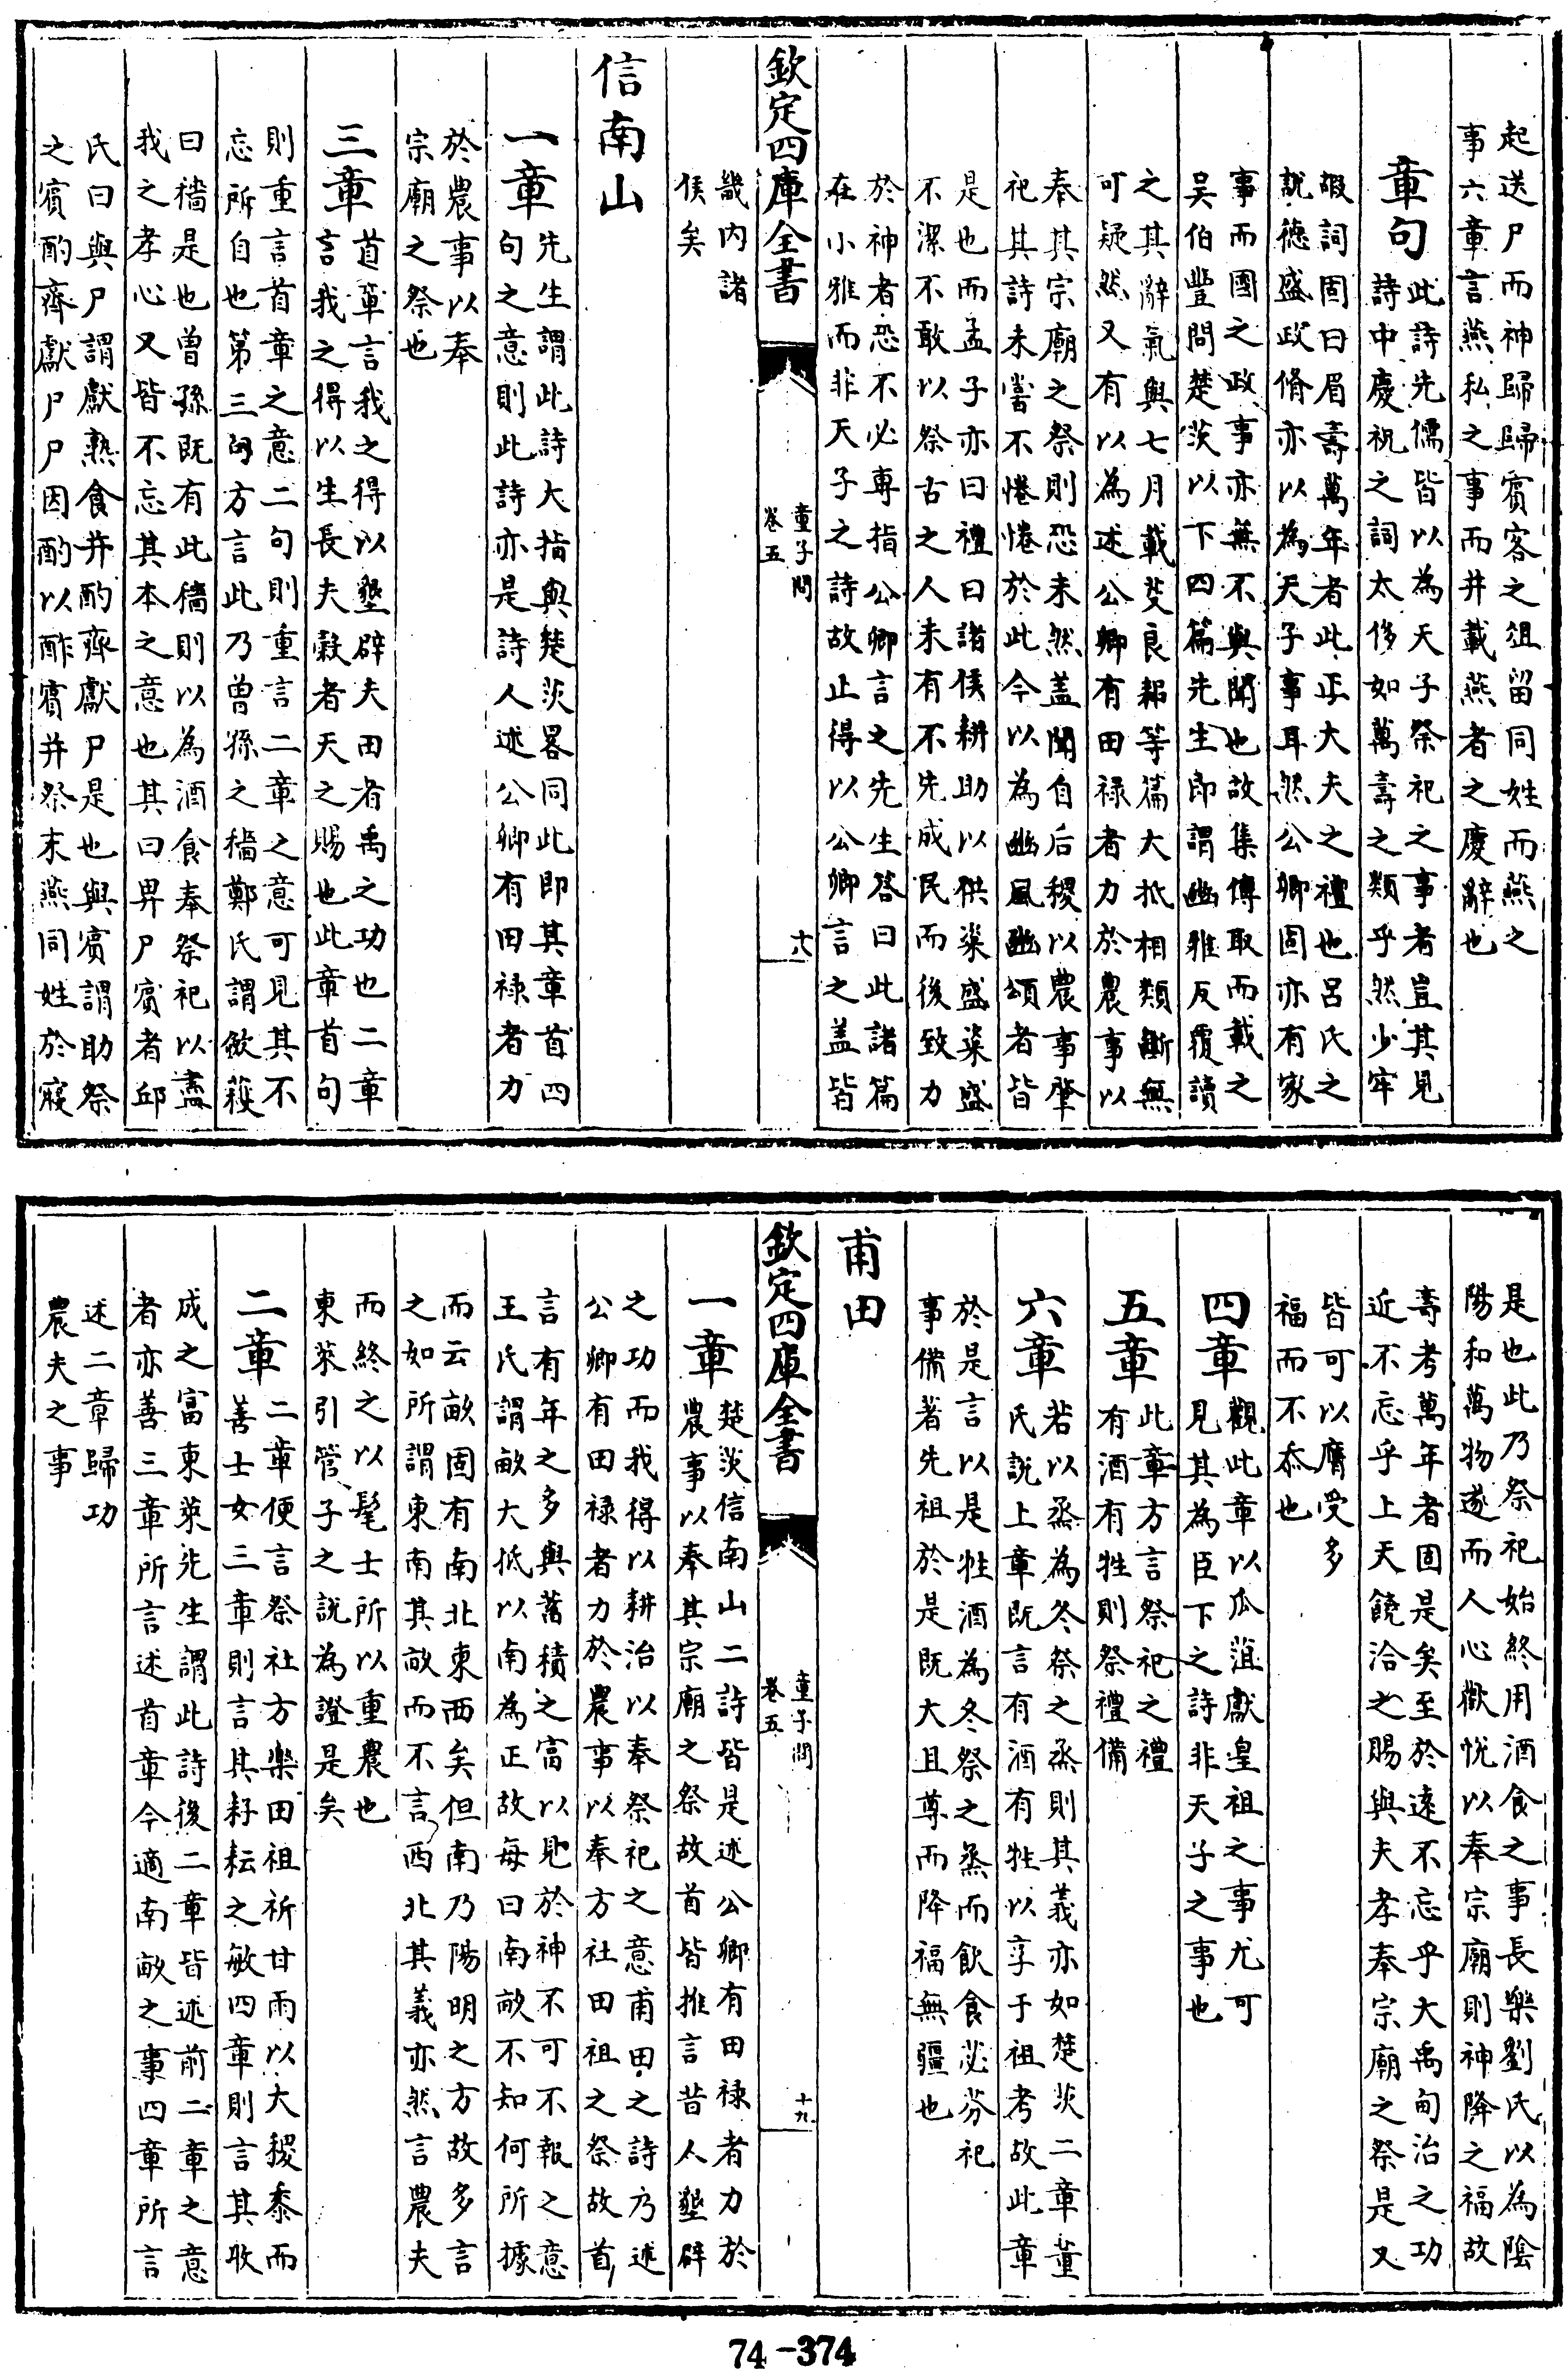 起送尸而神歸歸賓客之俎留同姓而燕之
事六章言燕私之事而并載燕者之慶辭也
章句
此詩先儒皆以為天子祭祀之事者豈其見
詩中慶祝之詞太侈如萬壽之類乎然少牢
嘏詞固曰眉壽萬年者此正大夫之禮也呂氏之
説德盛政脩亦以為天子事耳然公卿固亦有家
事而國之政事亦無不與聞也故集傳取而載之
吴伯豐問楚茨以下四篇先生即謂豳雅反覆讀
之其辭氣與七月載芟良耜等篇大抵相類斷無
可疑然又有以為述公卿有田禄者力於農事以
奉其宗廟之祭則恐未然盖聞自后稷以農事肇
祀其詩未嘗不惓惓於此今以為豳風豳頌者皆
是也而孟子亦曰禮曰諸侯耕助以供粢盛粢盛
不潔不敢以祭古之人未有不先成民而後致力
於神者恐不必專指公卿言之先生答曰此諸篇
在小雅而非天子之詩故止得以公卿言之盖皆
欽定四庫全書
童子問
卷五
十八
畿内諸
侯矣
信南山
一章
先生謂此詩大指與楚茨畧同此即其章首四
句之意則此詩亦是詩人述公卿有田禄者力
於農事以奉
宗廟之祭也
三章
首章言我之得以墾辟夫田者禹之功也二章
言我之得以生長夫穀者天之賜也此章首句
則重言首章之意二句則重言二章之意可見其不
忘所自也第三句方言此乃曾孫之穡鄭氏謂斂穫
曰穡是也曾孫既有此穡則以為酒食奉祭祀以盡
我之孝心又皆不忘其本之意也其曰畀尸賓者邱
氏曰與尸謂獻熟食并酌齊獻尸是也與賓謂助祭
之賓酌齊獻尸尸因酌以酢賓并祭末燕同姓於寢
是也此乃祭祀始終用酒食之事長樂劉氏以為陰
陽和萬物遂而人心歡悦以奉宗廟則神降之福故
壽考萬年者固是矣至於遠不忘乎大禹甸治之功
近不忘乎上天饒洽之賜與夫孝奉宗廟之祭是又
皆可以膺受多
福而不忝也
四章
觀此章以瓜菹獻皇祖之事尤可
見其為臣下之詩非天子之事也
五章
此章方言祭祀之禮
有酒有牲則祭禮備
六章
若以烝為冬祭之烝則其義亦如楚茨二章董
氏說上章既言有酒有牲以享于祖考故此章
於是言以是牲酒為冬祭之烝而飲食必芬祀
事備著先祖於是既大且尊而降福無疆也
甫田
欽定四庫全書
童子問
卷五
十九
一章
楚茨信南山二詩皆是述公卿有田禄者力於
農事以奉其宗廟之祭故首皆推言昔人墾辟
之功而我得以耕治以奉祭祀之意甫田之詩乃述
公卿有田禄者力於農事以奉方社田祖之祭故首
言有年之多與蓄積之富以見於神不可不報之意
王氏謂畝大抵以南為正故每曰南畝不知何所據
而云畝固有南北東西矣但南乃陽明之方故多言
之如所謂東南其畝而不言西北其義亦然言農夫
而終之以髦士所以重農也
東萊引管子之説為證是矣
二章
二章便言祭社方樂田祖祈甘雨以大稷黍而
善士女三章則言其耔耘之敏四章則言其收
成之富東萊先生謂此詩後二章皆述前二章之意
者亦善三章所言述首章今適南畝之事四章所言
述二章歸功
農夫之事
74-374